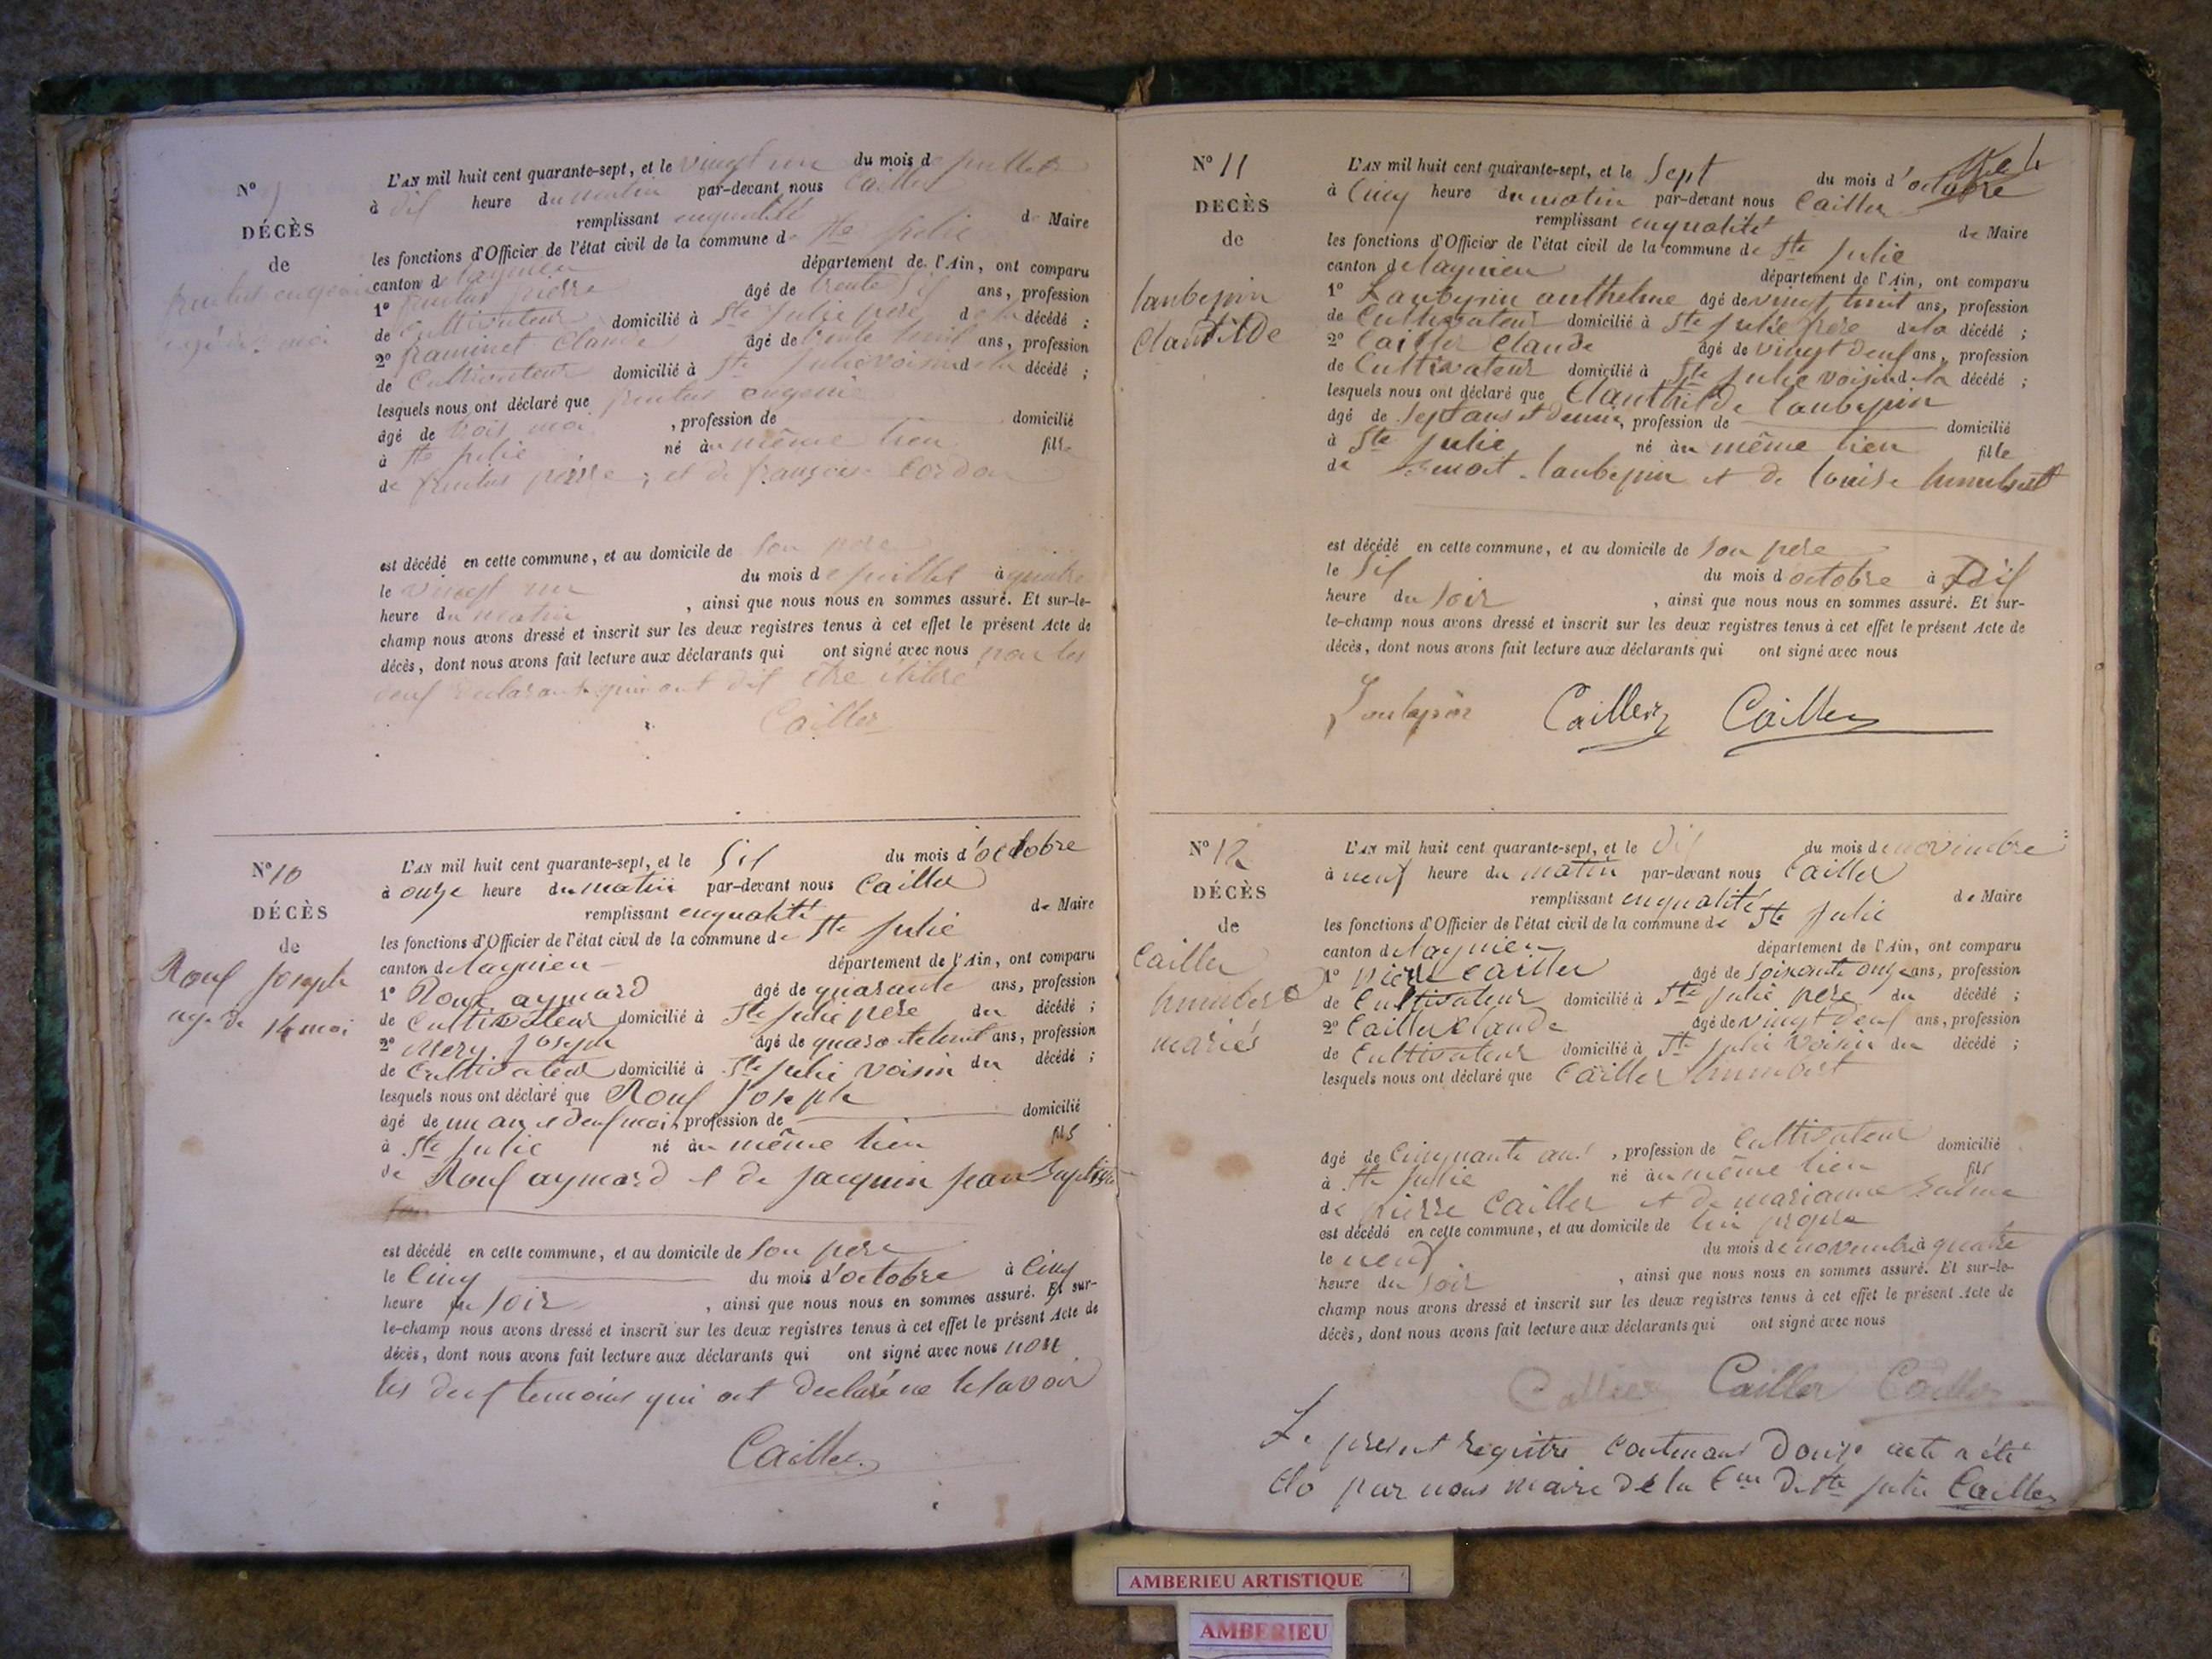 N° 9
DÉCÈS
de
L'AN mil huit cent quarante-sept, et le vingt un du mois de juillet
à dix heure du matin par-devant nous Cailler
remplissant enqualité de Maire
les fonctions d'Officier de l'état civil de la commune de Ste julie
canton de lagnieu département de l'Ain, ont comparu
1° pierre âgé de trente six ans, profession
de Cultivateur domicilié à Ste julie père de la décédé ;
2° framinet Claude âgé de trente huit ans, profession
de Cultivateur domicilié à Ste julie voisin de la décédé ;
lesquels nous ont déclaré que eugenie
âgé de trois moi , profession de domicilié
à Ste julie né au même lieu fille
de pierre ; et de françoise Cordon
est décédé en cette commune, et au domicile de son pere
le vingt un du mois de juillet à quatre
heure du matin , ainsi que nous nous en sommes assuré. Et sur-le-
champ nous avons dressé et inscrit sur les deux registres tenus à cet effet le présent Acte de
décès, dont nous avons fait lecture aux déclarants qui ont signé avec nous non les
deux declarant qui ont dit être
Cailler
N° 10
DÉCÈS
de
Roux joseph
age de 14 moi
L'AN mil huit cent quarante-sept, et le Six du mois d'octobre
à onze heure du matin par-devant nous Cailler
remplissant enqualité de Maire
les fonctions d'Officier de l'état civil de la commune de Ste julie
canton de lagnieu département de l'Ain, ont comparu
1° Roux aymard âgé de quarante ans, profession
de Cultivateur domicilié à Ste julie père du décédé ;
2° Mery joseph âgé de quarante huit ans, profession
de Cultivateur domicilié à Ste julie voisin du décédé ;
lesquels nous ont déclaré que Roux joseph
âgé de un an e deux moi, profession de domicilié
à Ste julie né au même lieu fils
de Roux aymard e de jacquin jean baptiste
est décédé en cette commune, et au domicile de son pere
le Cinq du mois d'octobre à Cinq
heure du soir , ainsi que nous nous en sommes assuré. Et sur-
le-champ nous avons dressé et inscrit sur les deux registres tenus à cet effet le présent Acte de
décès, dont nous avons fait lecture aux déclarants qui ont signé avec nous non
les deux temoins qui ont declaré ne le savoir
Cailler
N° 11
DÉCÈS
de
laubepin
Clautilde
L'AN mil huit cent quarante-sept, et le Sept du mois d'octobre
à Cinq heure du matin par-devant nous Cailler
remplissant enqualité de Maire
les fonctions d'Officier de l'état civil de la commune de Ste julie
canton de lagnieu département de l'Ain, ont comparu
1° Laubepin anthelme âgé de vingt huit ans, profession
de Cultivateur domicilié à Ste julie frère de la décédé ;
2° Cailler Claude âgé de vingt deux ans, profession
de Cultivateur domicilié à Ste julie voisin de la décédé ;
lesquels nous ont déclaré que Clauthilde laubepin
âgé de Sept ans et demie, profession de domicilié
à Ste julie né au même lieu fille
de laubepin et de louise humbert
est décédé en cette commune, et au domicile de son pere
le Six du mois d octobre à Dix
heure du soir , ainsi que nous nous en sommes assuré. Et sur-
le-champ nous avons dressé et inscrit sur les deux registres tenus à cet effet le présent Acte de
décès, dont nous avons fait lecture aux déclarants qui ont signé avec nous
Laubepin Cailler Cailler
N° 12
DÉCÈS
de
Cailler
humbert
mariés
L'AN mil huit cent quarante-sept, et le dix du mois de novembre
à neuf heure du matin par-devant nous Cailler
remplissant enqualité de Maire
les fonctions d'Officier de l'état civil de la commune de Ste julie
canton de lagnieu département de l'Ain, ont comparu
1° pierre Cailler âgé de soixante onze ans, profession
de Cultivateur domicilié à Ste julie père du décédé ;
2° Cailler Claude âgé de vingt deux ans, profession
de Cultivateur domicilié à Ste julie voisin du décédé ;
lesquels nous ont déclaré que Cailler humbert
âgé de Cinquante ans , profession de Cultivateur domicilié
à Ste julie né au même lieu fils
de pierre Cailler et de marianne
est décédé en cette commune, et au domicile de lui propre
le neuf du mois de novembre à quatre
heure du soir , ainsi que nous nous en sommes assuré. Et sur-le-
champ nous avons dressé et inscrit sur les deux registres tenus à cet effet le présent Acte de
décès, dont nous avons fait lecture aux déclarants qui ont signé avec nous
Cailler Cailler Cailler
Le present registre Contenant Douze acte a été
Clo par nous maire de la Cne de Ste julie Cailler
AMBERIEU ARTISTIQUE
AMBERIEU